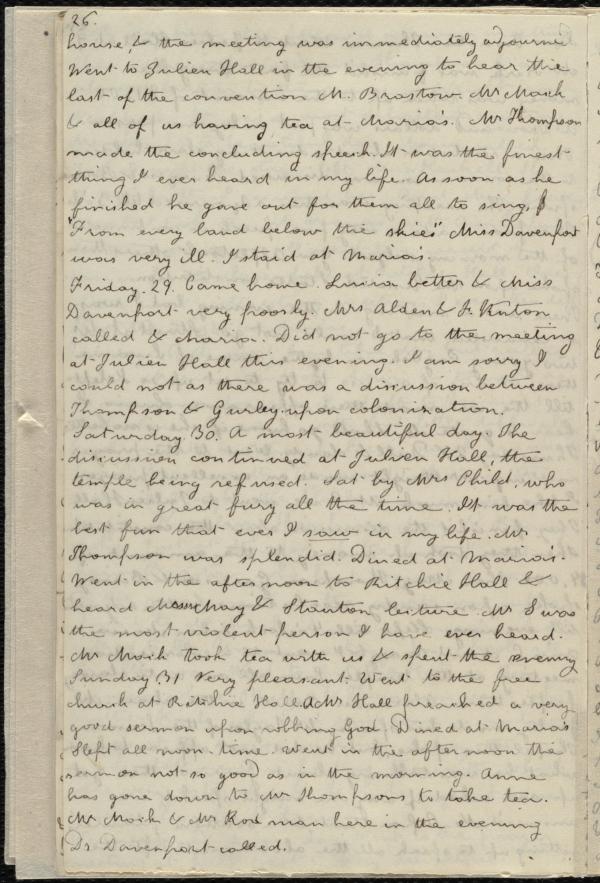 26.
house, & the meeting was immediately adjourned
Went to Julien Hall in the evening to hear the
last of the convention M. Brastow Mr Mack
& all of us having tea at Maria's. Mr Thompson
made the concluding speech. It was the finest
thing I ever heard in my life. As soon as he
finished he gave out for them all to sing,
"From every land below the skies" Miss Davenport
was very ill. I staid at Maria's.
Friday. 29. Came home. Luiva better & Miss
Davenport very poorly. Mrs Alden & J. Kenton
called & Maria. Did not go to the meeting
at Julien Hall this evening. I am sorry I
could not as there was a discussion between
Thompson & Gurley upon colonization.
Saturday 30. A most beautiful day. The
discussion continued at Julien Hall, the
temple being refused. Sat by Mrs Child, who
was in great fury all the time. It was the
best fun that ever I saw in my life. Mr
Thompson was splendid. Dined at Maria's.
Went in the afternoon to Ritchie Hall &
heard May & Stanton lecture. Mr S was
the most violent person I have ever heard.
Mr Mack took tea with us & spent the evening
Sunday 31 Very pleasant. Went to the free
church at Ritchie Hall. A Mr Hall preached a very
good sermon upon robbing God. Dined at Maria's
Slept all noon-time. Went in the afternoon the
sermon not so good as in the morning. Anne
has gone down to Mr Thompsons to take tea.
Mr Mack & Mr man here in the evening
Dr Davenport called.